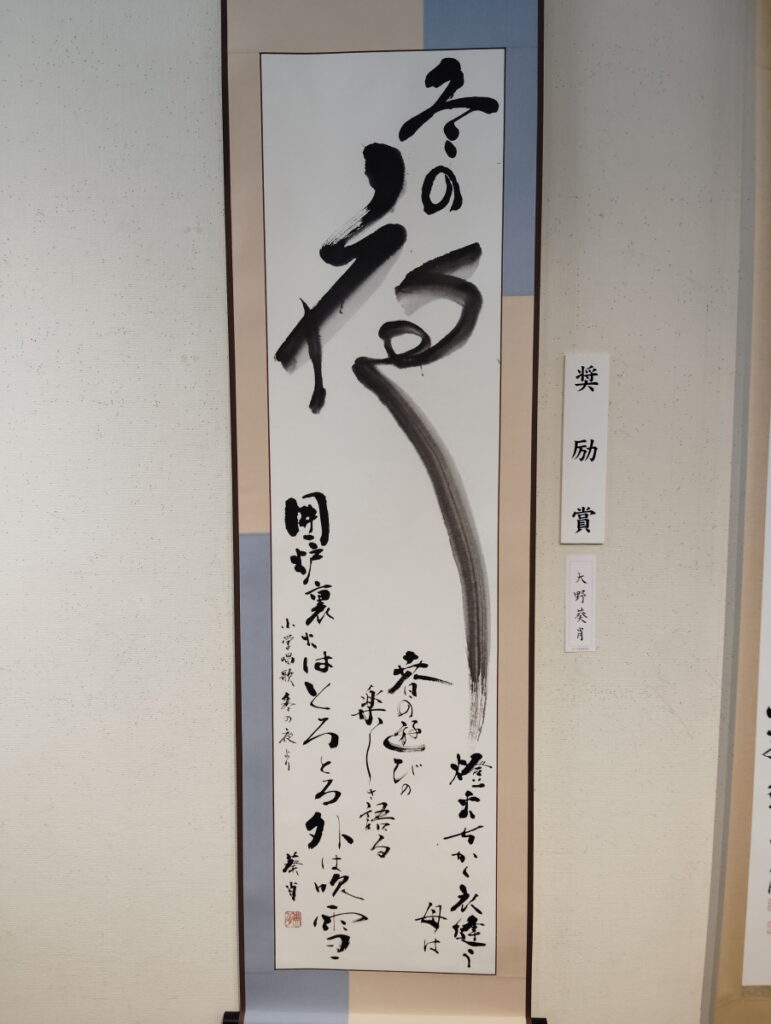 冬の
夜
燈火ちかく衣縫う
母は
春の遊びの
楽しさ語る
囲炉裏火はとろとろ外は吹雪
小学唱歌 冬の夜より
葵肖
奨励賞
大野葵肖